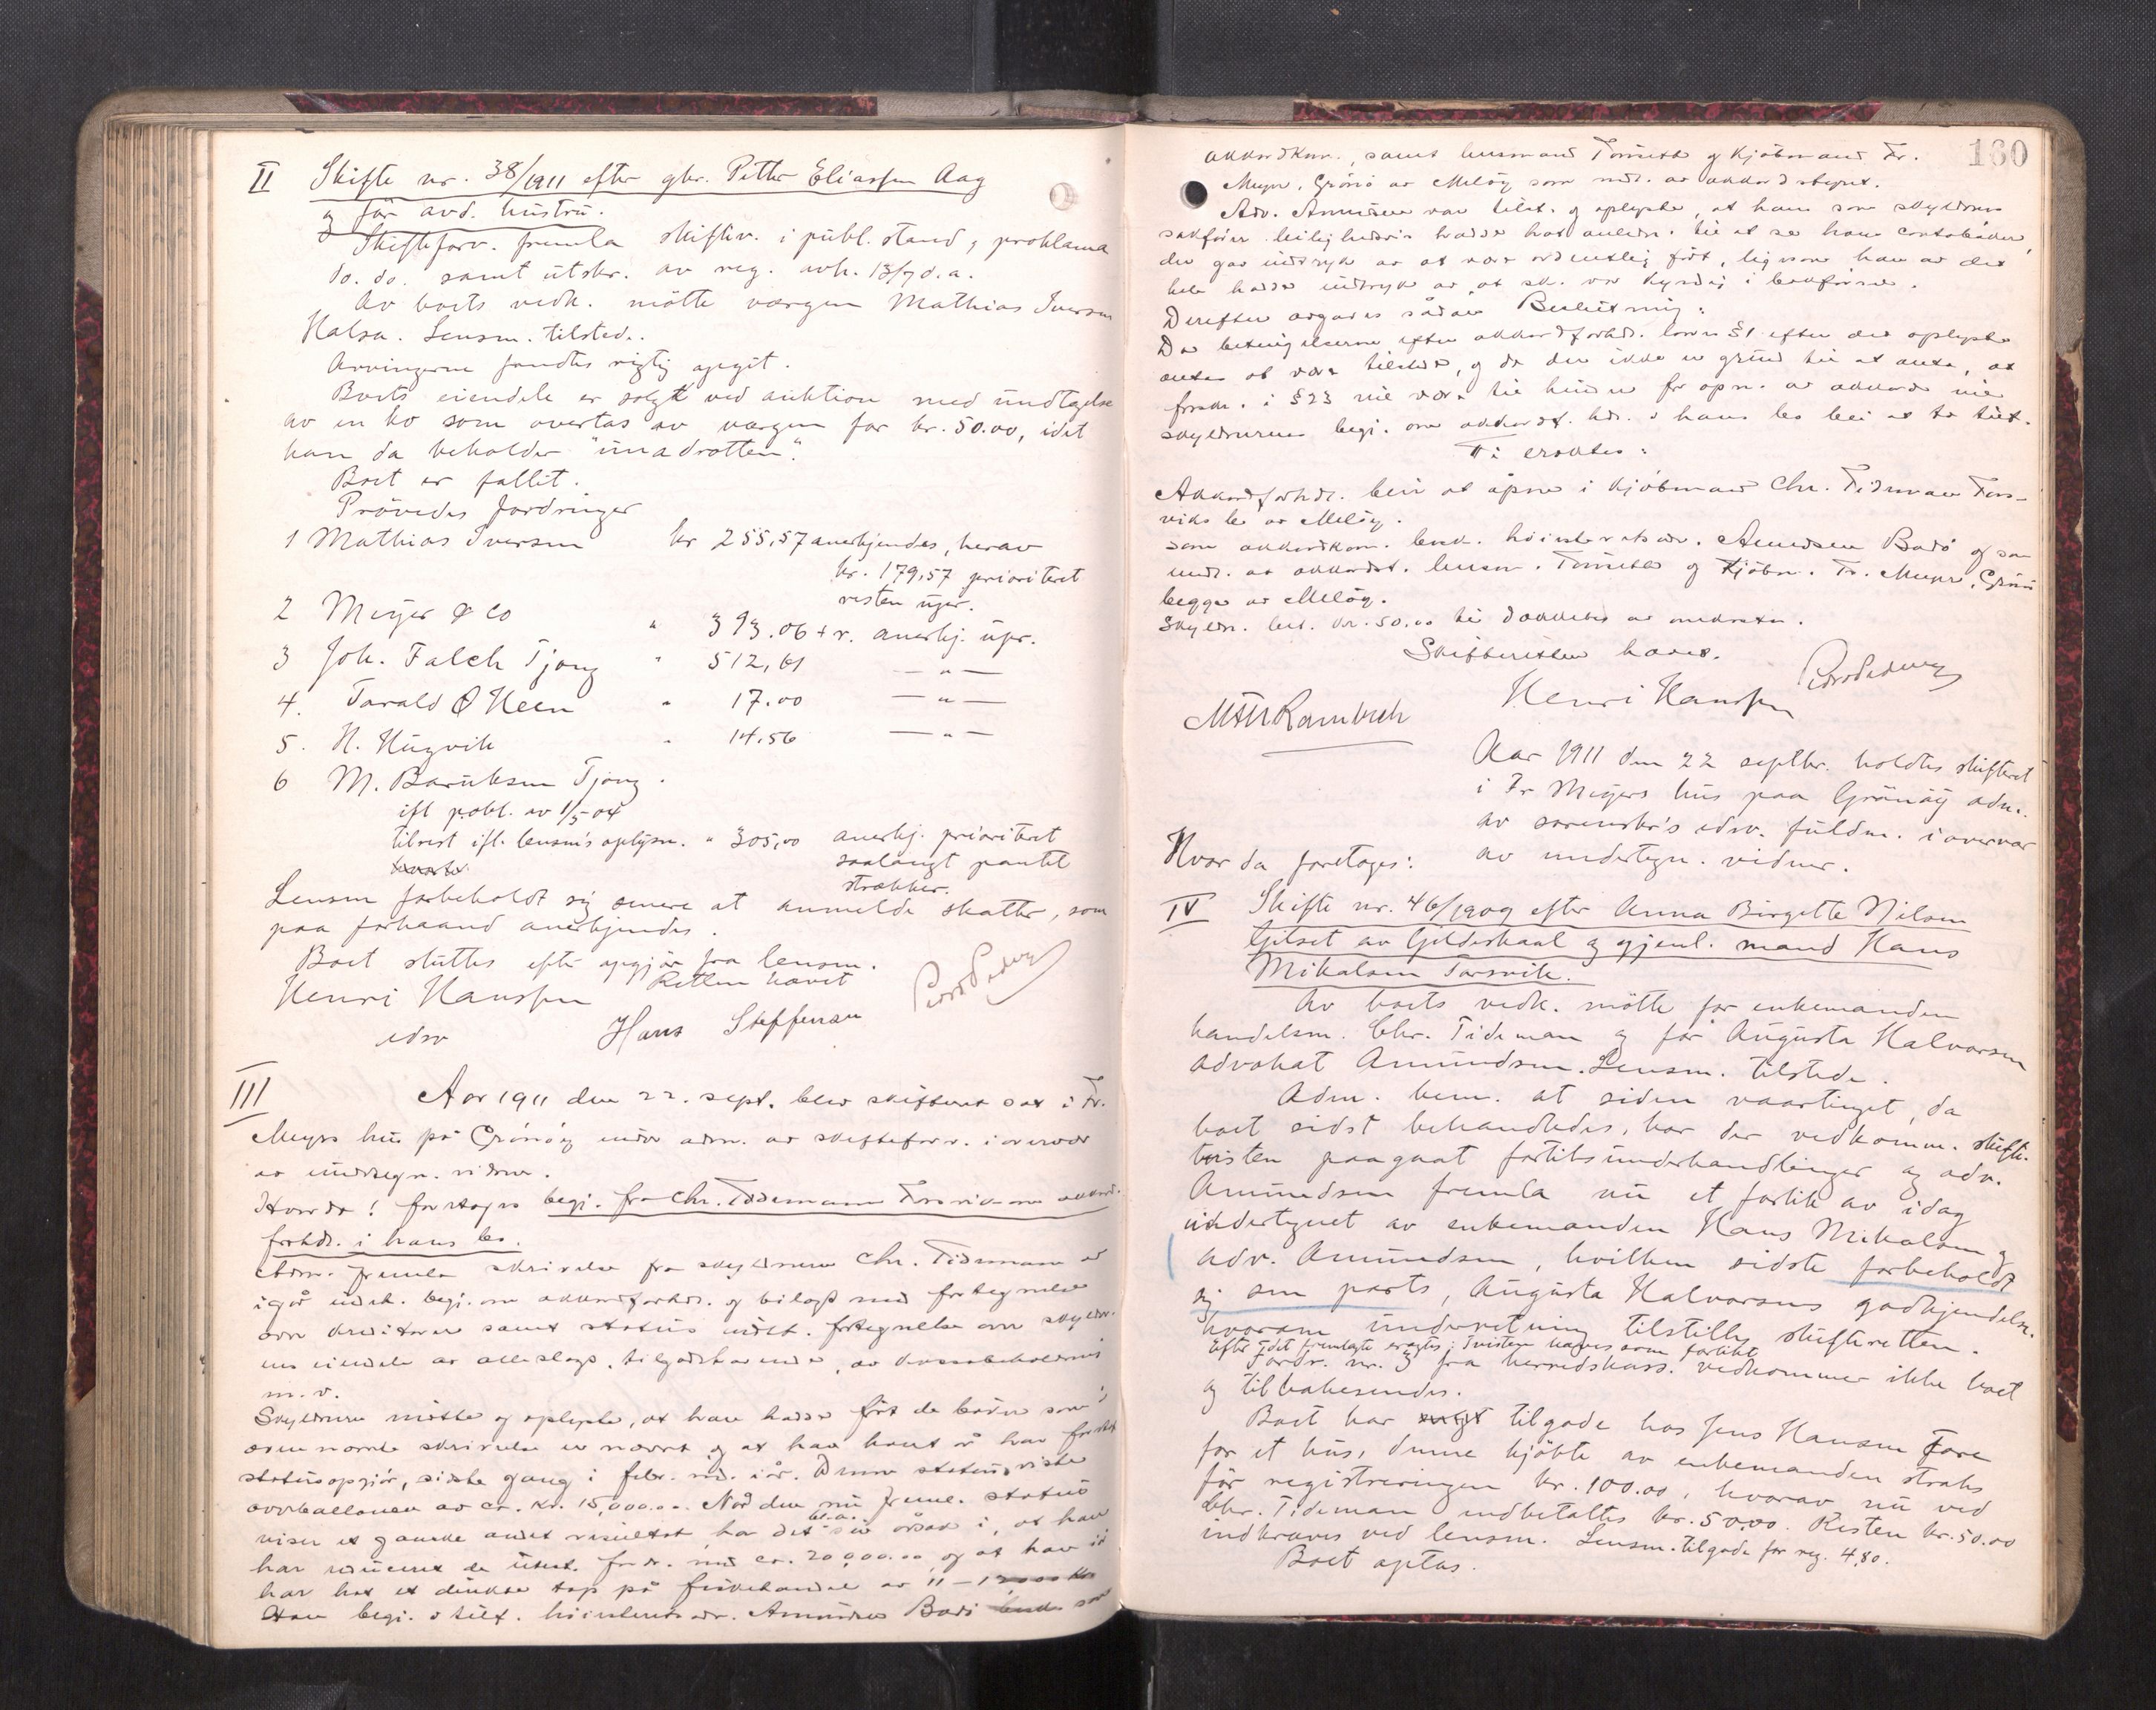 II Skifte nr. 38/1911 efter gbr. Petter Eliassen Aag
og før avd. hustru.
Skifteforv. fremla skiftev. i publ. stand, proklama
do. do. samt utskr. av reg. avh. 13/7 d.a.
Av boets vedk. mötte vergen Mathias Iversen
Halsa. Lensm. tilsted..
Arvingerne fandtes rigtig opgit.
Boets eiendele er solgt ved auktion med undtagelse
av en ko som overtas av vergen for kr. 50.00, idet
han da beholder "unadrotten".
Boet er fallit.
Prövedes fordringer
1 Mathias Iversen kr 255,57 anerkjendes, herav
kr. 179,57 prioritert
resten upr.
2 Meyer & Co " 393.06 + r. anerkj. upr.
3 Joh. Falch Tjong " 512,61 — " —
4. Tarald O Heen " 17.00 — " —
5. N. Hugvik " 14.56 — " —
6 M. Baruksen Tjong.
ifl pobl. av 1/5-04
tilrest ifl. lensm's oplysn. " 305,00 anerkj. prioritert
saalangt pantet
strækker.
Lensm forbeholdt sig senere at anmelde skatter, som
paa forhaand anerkjendes.
Boet sluttes efter opgjör fra lensm.
Retten hævet
Henri Hanssen
edsv
Hans Steffensen
III Aar 1911 den 22. sept. blev skifteret sat i Fr.
Meyers hus på Grönöy under adm. av skifteforv. i overvær
av undertegn. vidner.
Hvorda! foretoges begj. fra Chr. Tidemann Forsvik om akkord-
forhdl. i hans bo.
Adm. fremla skrivelse fra skyldneren Chr. Tidemann av
igår indeh. begj. om akkordforhdl. og bilagt med fortegnelse
over kreditorer samt status indeh. fortegnelse over skyldne-
rens eiendele av alle slags, tilgodehavender, av kassabeholdning
m.v.
Skyldneren mötte og oplyste, at han hadde fört de böker som i
ovennævnte skrivelse er nævnt og at han hvert år har foretat
statusopgjör, sidste gang i febr. md. i år. Denne status viste
overballance av ca. kr. 15,000.00. Når den nu freml. status
viser et ganske andet resultat, har det bl.a. sin årsak i, at han
har reduceret de utest. fordr. med ca. 20,000.00, og at han iår
har hat et direkte tap på fiskehandel av 11 – 12000 kr
Han begj. o.tilf. höiesteretsadv. Amundsen Bodö som
160
akkordkom., samt lensmand Tönseth og kjöbmand Fr.
Meyer, Grönö av Melöy som medl. av akkordstyret.
Adv. Amundsen var tilst. og oplyste, at han som skyldneren
sakförer leilighedsvis hadde hat anledn. til at se hans contoböker,
der gav indtryk av at være ordentlig fört, ligesom han av det
hele hadde indtryk av, at sk. var kyndig i bokförsel.
Derefter avgaves sådan Beslutning:
Da betingelserne efter akkordforhdl. loven §1 efter det oplyste
antas at være tilstede, og da der ikke er grund til at anta, at
forsk. i § 23 vil være til hinder for åpn. av akkord vil
skyldnerens begj. om akkordf. hdl. i hans bo bli at ta tilf.
Ti eraktes:
Akkordforhdl. blir at åpne i kjöbmand Chr. Tidemann Fors-
viks bo av Melöy.
Som akkordkom. besk. höiesteretsadv. Amundsen Bodö og som
medl. av akkordst. lensm. Tönseth og kjöbm. Fr. Meyer, Grönö
begge av Melöy.
Skyldn. bet. kr. 50.00 til dækkelse av omkostn.
Skifteretten hævet.
Henri Hanssen
MAH Rambech
Aar 1911 den 22 septbr. holdtes skifteret
i Fr Meyers hus paa Grönöy adm.
av sorenskr's edsv. fuldm. i overvær
av undertegn. vidner.
Hvor da foretages:
IV Skifte nr. 46/1909 efter Anna Birgitte Nilsen
Gilset av Gildeskaal og gjenl. mand Hans
Mikalsen Forsvik.
Av boets vedk. mötte for enkemanden
handelsm. Chr. Tideman og for Augusta Halvorsen
advokat Amundsen. Lensm. tilstede.
Adm. bem. at siden vaartinget, da
boet sidst behandledes, har der vedkomm. skifte-
tvisten paagaat forliksunderhandlinger og adv.
Amundsen fremla nu et forlik av idag
undertegnet av enkemanden Hans Mikalsen og
adv. Amundsen, hvilken sidste forbeholdt
sig sin parts, Augusta Halvorsens godkjendelse.
hvorom underretning tilstilles skifteretten.
Efter det fremlagte eragtes: Tvisten hæves som forlikt
Fordr. nr. 3 fra herredskass. vedkommer ikke boet
og tilbakesendes.
Boet har tilgode hos Jens Hansen Fore
for et hus, denne kjöbte av enkemanden straks
för registreringen kr. 100.00, hvorav nu ved
Chr. Tideman indbetaltes kr. 50.00. Resten kr. 50.00
indkræves ved lensm. Lensm. tilgode for reg. 4,80.
Boet optas.